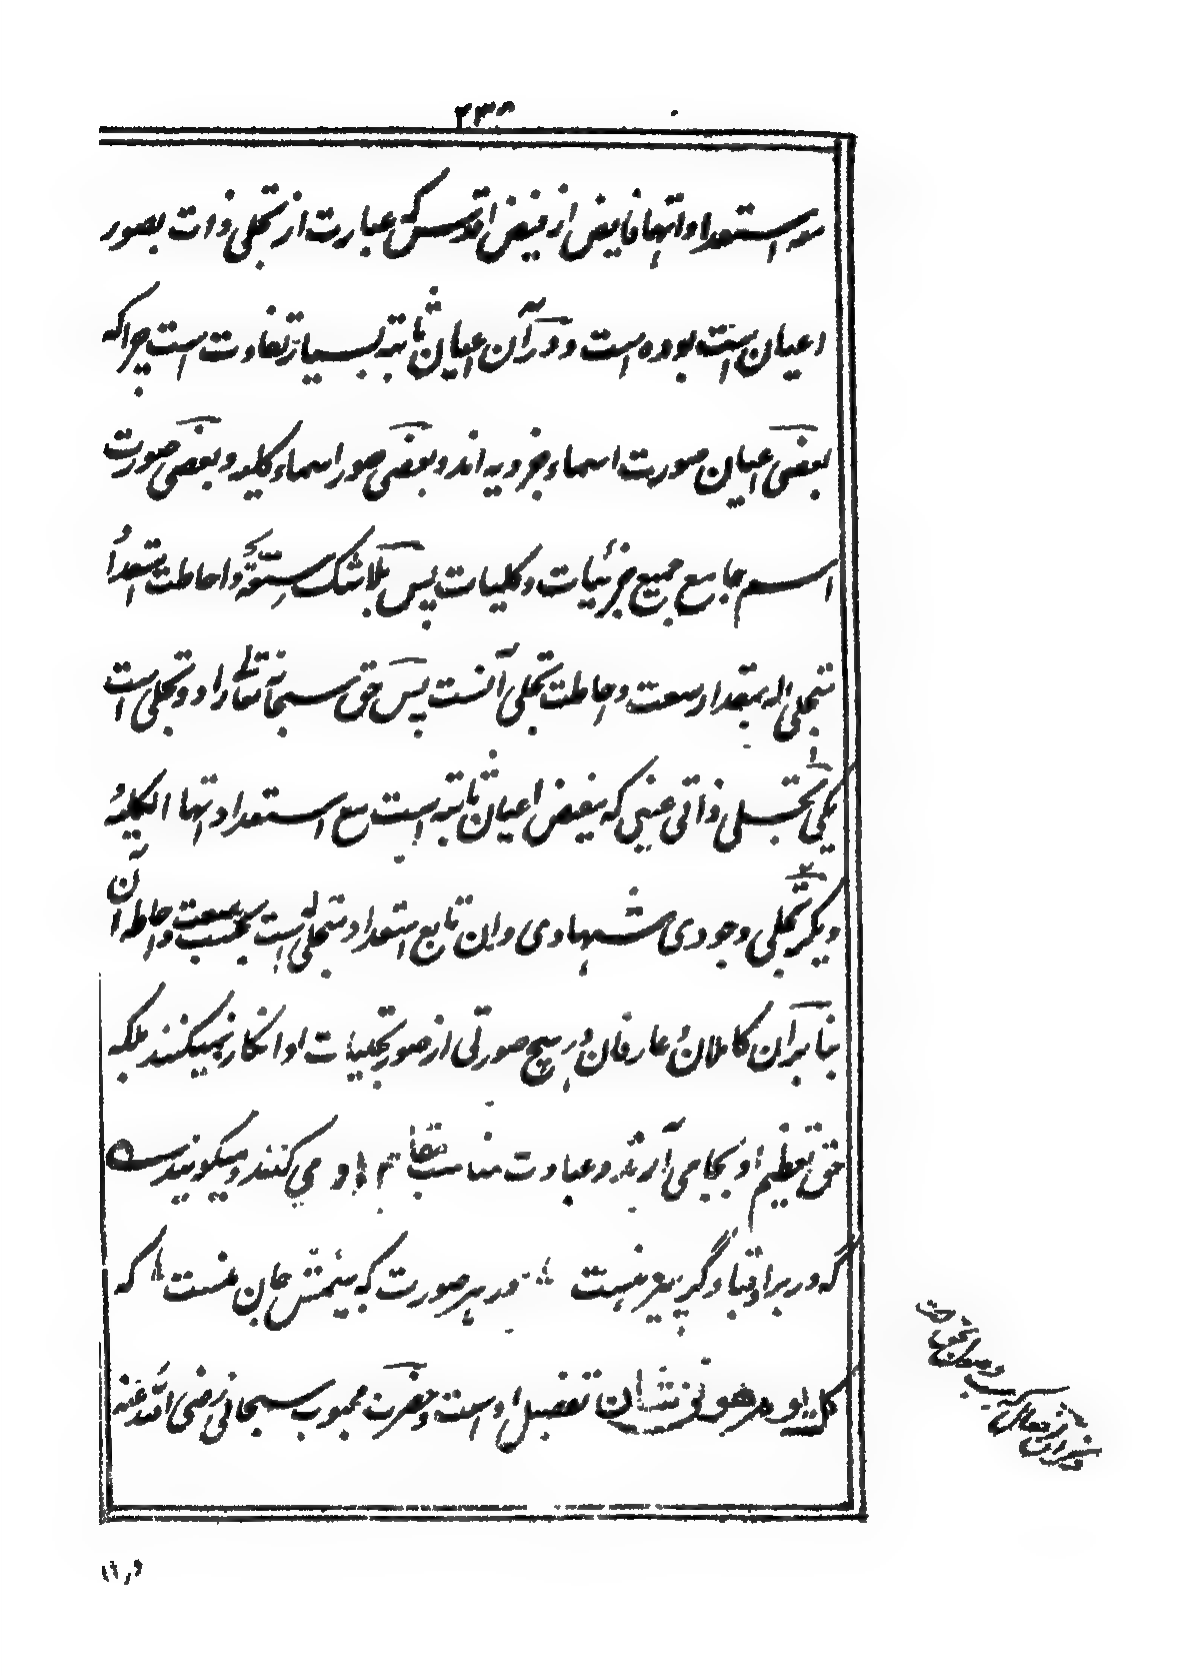 ۲۳۶
مه استعداد اتها فایض از فیض اقدس که عبارت از تجلی ذات بصور
اعیان است بوده است و در آن اعیان ثابته بسیار تفاوت است چرا که
بعضی اعیان صورت اسماء جزویه اند و بعضی صور اسماء کلیه و بعضی صورت
اسم جامع جمیع جزئیات و کلیات پس بلاشک سعة و احاطت استعداد
متجلی له بمقدار وسعت و احاطت تجلی آنست پس حق سبحانه تعالی را دو تجلی است
یکی تجلی ذاتی غیبی که بفیض اعیان ثابته است مع استعداداتها الکلیة
دیگر تجلی وجودی شهادی و این تابع استعداد متجلی له است بحسب سعت و احاطه آن
بنابرآن کاملان و عارفان در هیچ صورتی از صور تجلیات او انکار نمیکنند بلکه
حق تعظیم او بجا می آرند و عبادت مناسب مقام او می کنند و میگویند
که در برابر قباد گر بغیر نیست در هر صورت که بینمش جان منست که
کل یوم هو فی شان تفصیل اوست و حضرت محبوب سبحانی رضی الله عنه